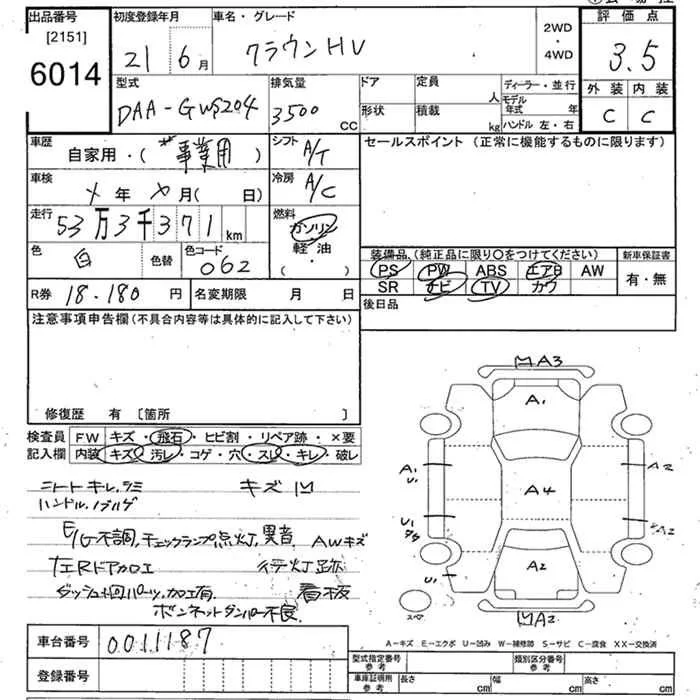 出品番号 [2151] 6014
初度登録年月 21 6月
車名・グレード クラウンHV
2WD・4WD
評価点 3.5
外装 C 内装 C
型式 DAA-GWS204
排気量 3500 CC
ドア 形状
定員 人 積載 kg
ディーラー・並行
モデル年式 年
ハンドル 左・右
車歴 自家用・(事業用)
シフト A/T
セールスポイント (正常に機能するものに限ります)
車検 年 月( 日)
冷房 A/C
走行 53万3千371km
燃料 ガソリン 軽・油 ・( )
色 白 色替 色コード 062
装備品 (純正品に限り○をつけてください)
新車保証書 有・無
PS PW ABS エアB AW
SR ナビ TV カワ
R券 18.180円
名変期限 月 日
後日品
注意事項申告欄 (不具合内容等は具体的に記入して下さい)
修復歴 有 [箇所 ]
検査員記入欄
FW キズ・飛石・ヒビ割・リペア跡・×要
内装 キズ・汚レ・コゲ・穴・スレ・キレ・破レ
シートキレ,シミ キズ凹
ハンドル,ノブハゲ
E/G不調,チェックランプ点灯,異音 AWキズ
行灯跡
ダッシュ廻パーツ,加工有 看板
ボンネットダンパー不良
A3
A1
A1 U1
A2
A4
U1
A2
A2
U1
スペア
A2
A-キズ E-エクボ U-凹み W-補修跡 S-サビ C-腐食 XX-交換済
車台番号 0011187
登録番号
型式指定番号 参考
類別区分番号 参考
車庫証明用 参考 長さ cm 幅 cm 高さ cm